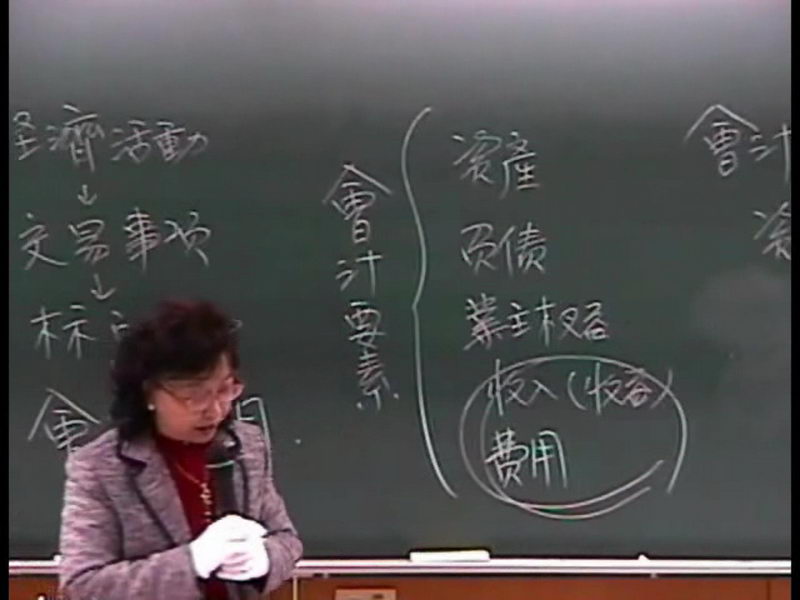 經濟活動
↓
交易事項
↓
標
會
用
會計要素
資產
負債
業主权益
收入(收益)
費用
會計
資